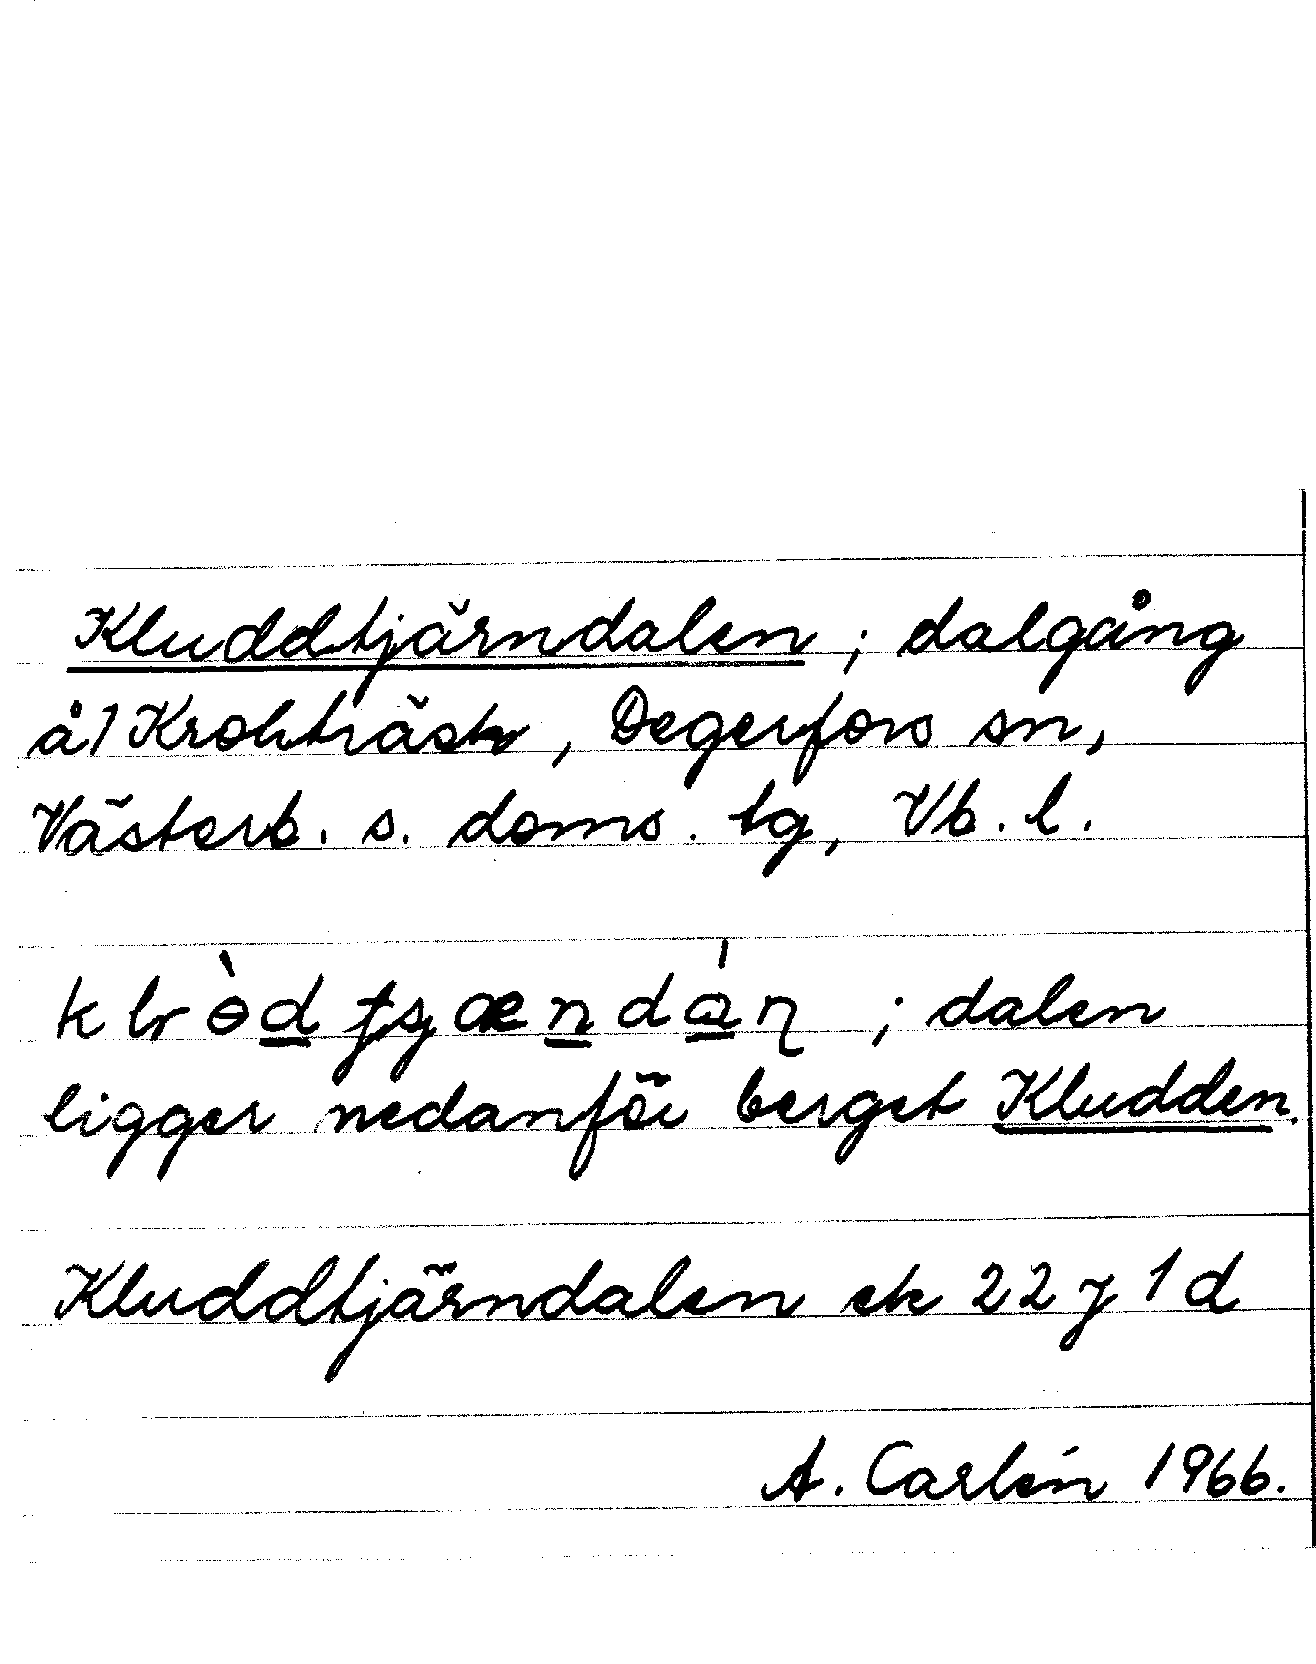 Kluddtjärndalen ; dalgång
å/ Krokträsk, Degerfors sn,
Västerb. s. doms. tg, Vb. l.
; dalen
ligger nedanför berget Kludden.
Kluddtjärndalen ek 22 J 1 d
A. Carlén 1966.